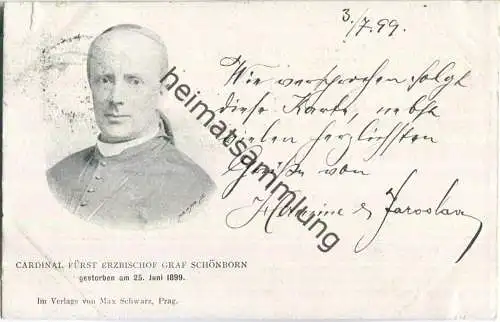 3./7.99.
Wie versprochen folgt
diese Karte, nebst
vielen herzlichsten
Grüße von
& Jaroslav
heimatsammlung.de
CARDINAL FÜRST ERZBISCHOF GRAF SCHÖNBORN
gestorben am 25. Juni 1899.
Im Verlage von Max Schwarz, Prag.